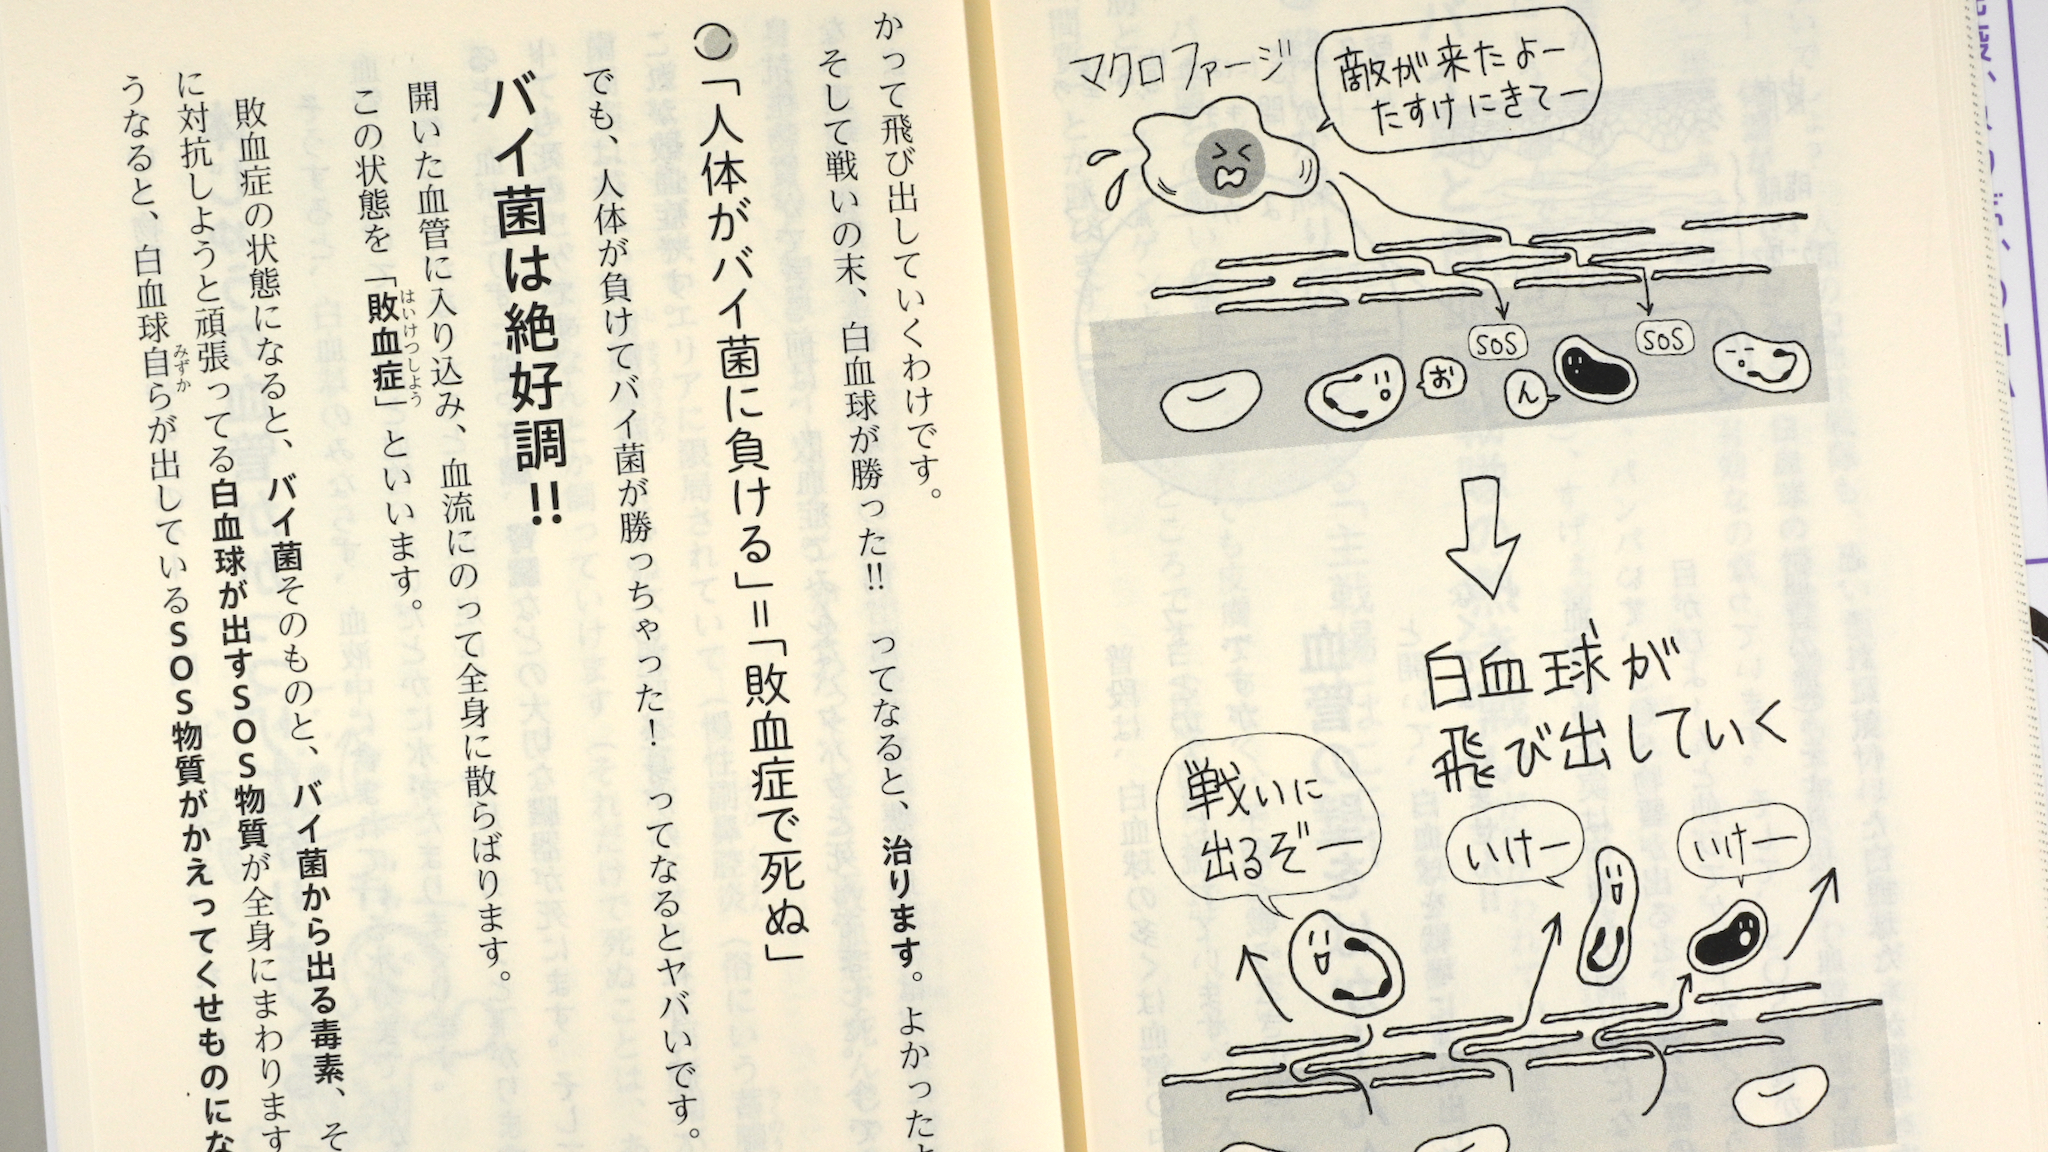 マクロファージ
敵が来たよー
たすけにきてー
SOS
SOS
お
ん
白血球が
飛び出していく
戦いに
出るぞー
いけー
いけー
かって飛び出していくわけです。
そして戦いの末、白血球が勝った!! ってなると、治ります。よかったよ
「人体がバイ菌に負ける」=「敗血症で死ぬ」
でも、人体が負けてバイ菌が勝っちゃった! ってなるとヤバいです。
バイ菌は絶好調!!
開いた血管に入り込み、血流にのって全身に散らばります。
この状態を「敗血症」といいます。
はいけつしよう
敗血症の状態になると、バイ菌そのものと、バイ菌から出る毒素、そ
に対抗しようと頑張ってる白血球が出すSOS物質が全身にまわります
うなると、白血球自らが出しているSOS物質がかえってくせものにな
みずか